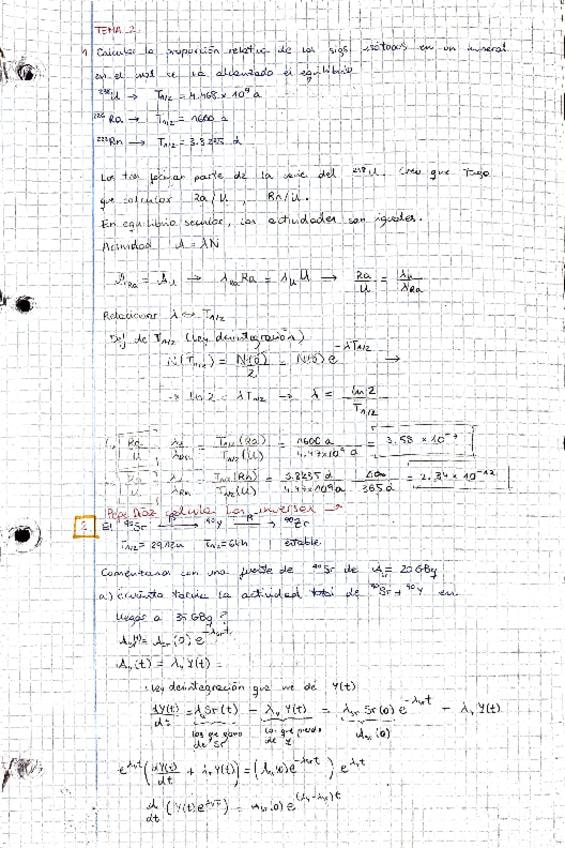 TEMA 2
1 Calcular la proporción relativa de los sigs. isótopos en un mineral
en el cual se ha alcanzado el equilibrio
²³⁸U → T₁/₂ = 4.468 × 10⁹ a
²²⁶Ra → T₁/₂ = 1600 a
²²²Rn → T₁/₂ = 3.8235 d
Los tres forman parte de la serie del ²³⁸U. Creo que tengo
que calcular Ra/U , Rn/U.
En equilibrio secular, las actividades son iguales.
Actividad A = λN
A_Ra = A_U → λ_Ra Ra = λ_U U → Ra/U = λ_U/λ_Ra
Relacionar λ ↔ T₁/₂
Def de T₁/₂ (Ley desintegración)
N(T₁/₂) = N(0)/2 = N(0) e^(-λT₁/₂) →
→ ln 2 = λ T₁/₂ → λ = ln 2/T₁/₂
Ra/U = T₁/₂(Ra)/T₁/₂(U) = 1600 a/4.47×10⁹ a = 3.58 × 10⁻⁷
T₁/₂(Rn)/T₁/₂(U) = 3.8235 d/4.47×10⁹ a 1a/365 d = 2.34 × 10⁻¹²
Pepe Díaz calcula los inversos →
2. El ⁹⁰Sr → ⁹⁰Y → ⁹⁰Zr
T₁/₂ = T₁/₂ = 64h estable.
Comenzamos con una fuente de ⁹⁰Sr de A = 20 GBq
a) cuánto tarda la actividad total de ⁹⁰Sr + ⁹⁰Y en
llegar a 35 GBq ?
A_Sr(t) = A_Sr(0) e^(-λ_Sr t)
A_Y(t) = λ_Y Y(t) =
· Ley desintegración que me dé Y(t)
dY(t)/dt = λ_Sr Sr(t) - λ_Y Y(t) = λ_Sr Sr(0) e^(-λ_Sr t) - λ_Y Y(t)
los que gano de Sr los que pierdo de A_Sr(0)
e^(λ_Y t) (dY(t)/dt + λ_Y Y(t)) = (A_Sr(0) e^(-λ_Sr t)) e^(λ_Y t)
d/dt (Y(t) e^(λ_Y t)) = A_Sr(0) e^((λ_Y - λ_Sr) t)